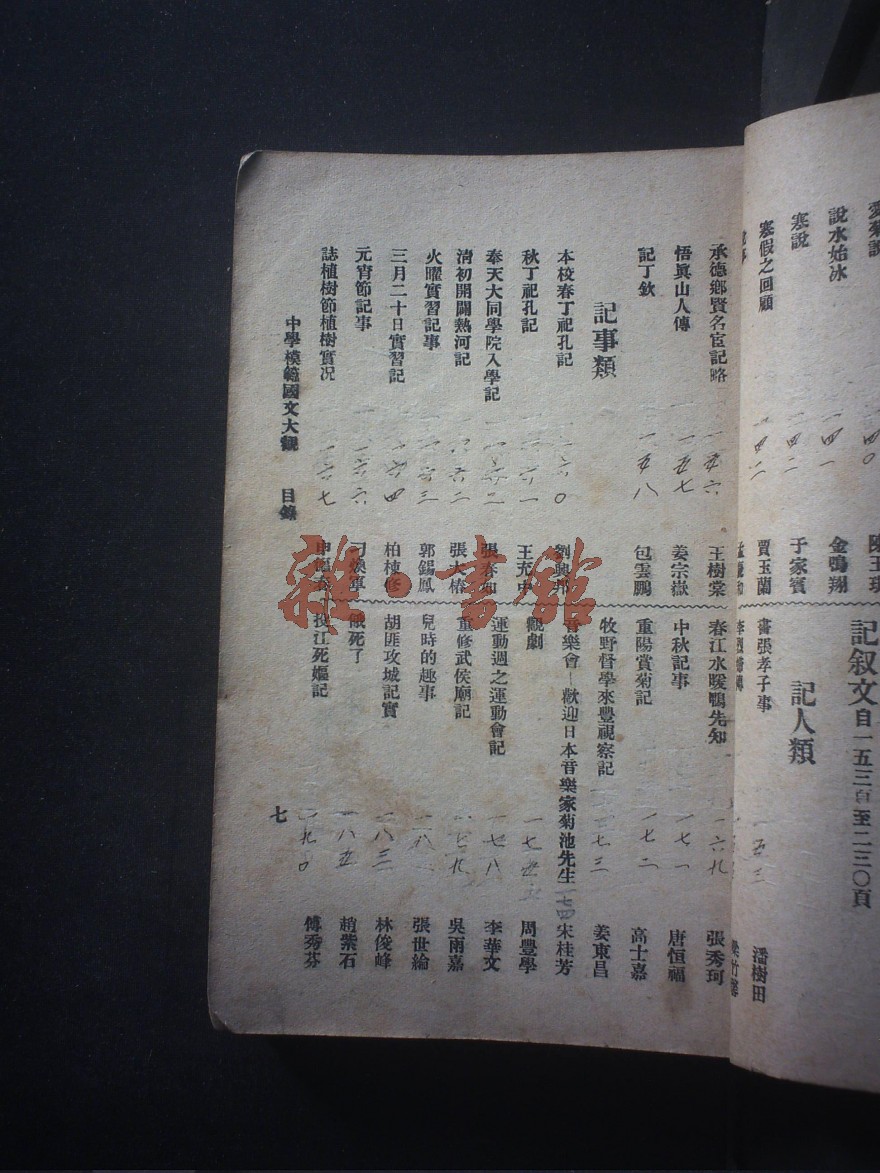 說水始冰 一四一 金鳴翔
寒說 一四二 于家賓
寒假之回顧 一四二 賈玉蘭
記叙文 自一五三頁至二三〇頁
記人類
書張孝子事 一五三 潘樹田
承德鄉賢名宦記略 一五六 王樹棠
悟眞山人傳 一五七 姜宗嶽
記丁欽 一五八 包雲鵬
記事類
本校春丁祀孔記 一六〇 劉興邦
秋丁祀孔記 一六一 王充中
奉天大同學院入學記 一六二 張春如
清初開闢熱河記 一六二 張大椿
火曜實習記事 一六三 郭錫鳳
三月二十日實習記 一六四 柏棟修
元宵節記事 一六六
誌植樹節植樹實况 一六七
春江水暖鴨先知 一六九 張秀珂
中秋記事 一七一 唐恒福
重陽賞菊記 一七二 高士嘉
牧野督學來豐視察記 一七三 姜東昌
音樂會—歡迎日本音樂家菊池先生 一七四 宋桂芳
觀劇 一七五 周豐學
運動週之運動會記 一七八 李華文
重修武侯廟記 一七九 吳雨嘉
兒時的趣事 張世綸
胡匪攻城記實 一八三 林俊峰
餓死了 一八五 趙紫石
投江死嫗記 一九〇 傅秀芬
中學模範國文大觀 目錄
七
雜·書館